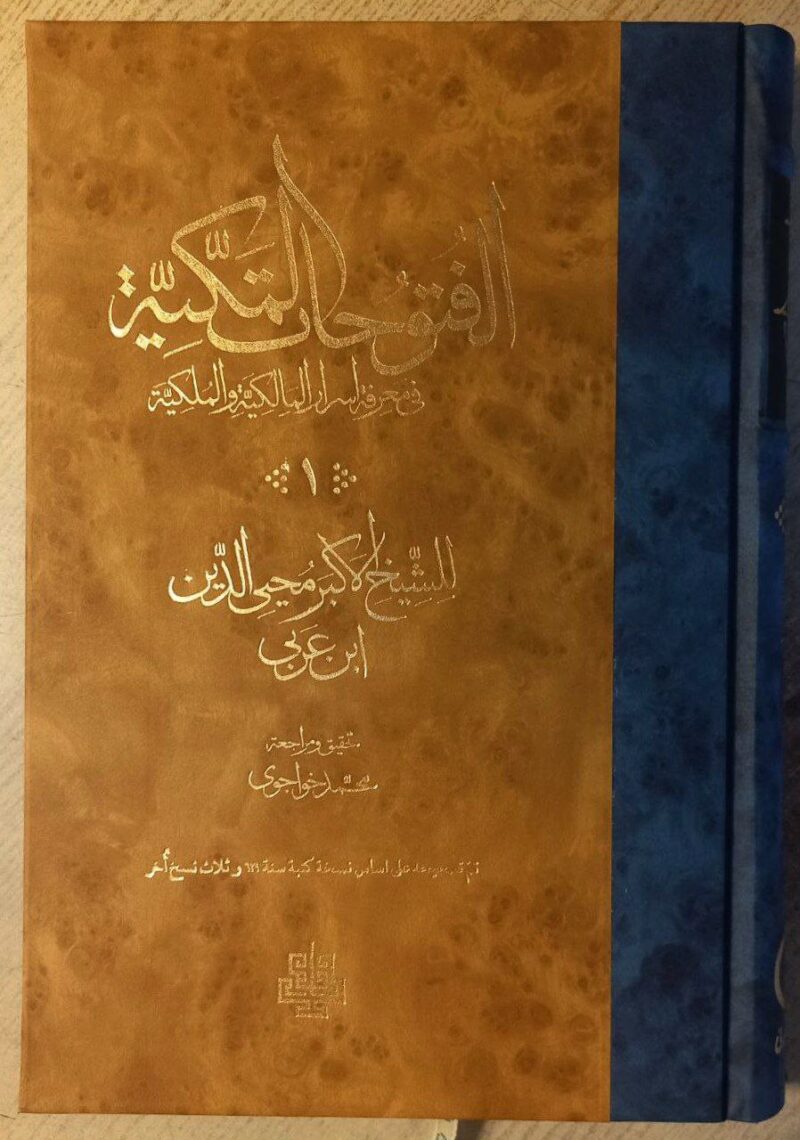 الفُتُوحات المَكّيّة
في معرفة أسرار المالكيّة والمُلكيّة
١
للشّيخ الاكبر مُحيي الدّين
ابن عربي
تحقيق و مراجعة
محمّد خواجوی
تمّ على اساس نسخة كتبة سنة و ثلاث نسخ أُخر